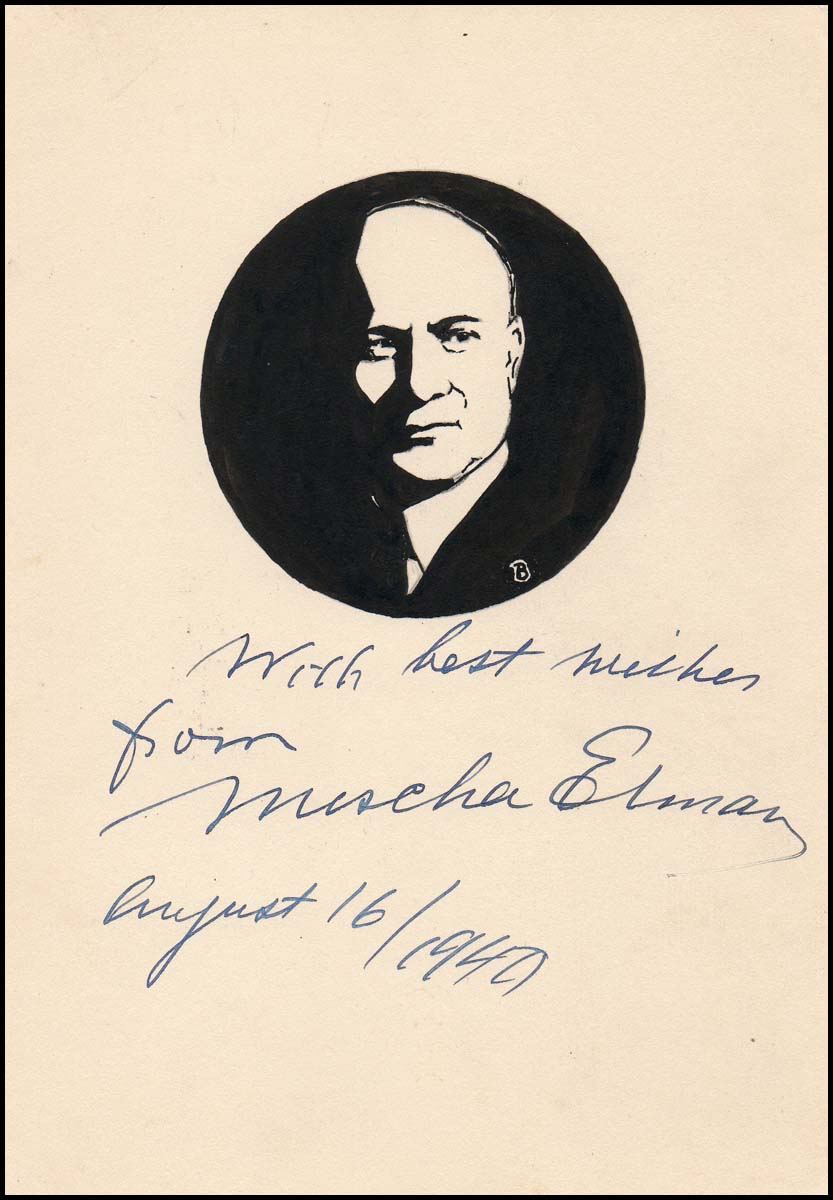 B
With best wishes
from
Mischa Elman
August 16/1940